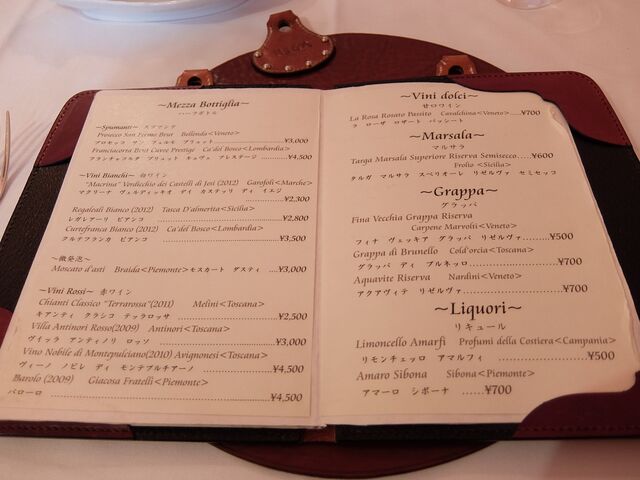 ~Mezza Bottiglia~
ハーフボトル
~Spumanti~ スプマンテ
Prosecco San Fermo Brut Bellenda<Veneto>
プロセッコ サン フェルモ ブリュット ......¥3,000
Franciacorta Brut Cuvée Prestige Ca'del Bosco<Lombardia>
フランチャコルタ ブリュット キュヴェ プレステージ ......¥4,500
~Vini Bianchi~ 白ワイン
"Macrina" Verdicchio dei Castelli di Jesi (2012) Garofoli<Marche>
マクリーナ ヴェルディッキオ デイ カステッリ ディ イエジ
......¥2,300
Regaleali Bianco (2012) Tasca D'almerita<Sicilia>
レガレアーリ ビアンコ ......¥2,800
Curtefranca Bianco (2012) Ca'del Bosco<Lombardia>
クルテフランカ ビアンコ ......¥3,500
~微発泡~
Moscato d'asti Braida<Piemonte>モスカート ダスティ ....¥3,000
~Vini Rossi~ 赤ワイン
Chianti Classico "Terrarossa"(2011) Melini<Toscana>
キアンティ クラシコ テッラロッサ ......¥2,500
Villa Antinori Rosso(2009) Antinori<Toscana>
ヴィッラ アンティノリ ロッソ ......¥3,000
Vino Nobile di Montepulciano(2010) Avignonesi<Toscana>
ヴィーノ ノビレ ディ モンテプルチアーノ ......¥4,500
Barolo (2009) Giacosa Fratelli<Piemonte>
バローロ ......¥4,500
~Vini dolci~
甘口ワイン
La Rosa Rosato Passito Cavalchina<Veneto>.....¥700
ラ ローザ ロザート パッシート
~Marsala~
マルサラ
Targa Marsala Superiore Riserva Semisecco.....¥600
Frolio <Sicilia>
タルガ マルサラ スペリオーレ リゼルヴァ セミセッコ
~Grappa~
グラッパ
Fina Vecchia Grappa Riserva
Carpene Marvolti<Veneto>
フィナ ヴェッキア グラッパ リゼルヴァ.........¥500
Grappa di Brunello Cold'orcia<Toscana>
グラッパ ディ ブルネッロ.........¥700
Aquavite Riserva Nardini<Veneto>
アクアヴィテ リゼルヴァ......¥700
~Liquori~
リキュール
Limoncello Amarfi Profumi della Costiera<Campania>
リモンチェッロ アマルフィ ......¥500
Amaro Sibona Sibona<Piemonte>
アマーロ シボーナ ......¥700